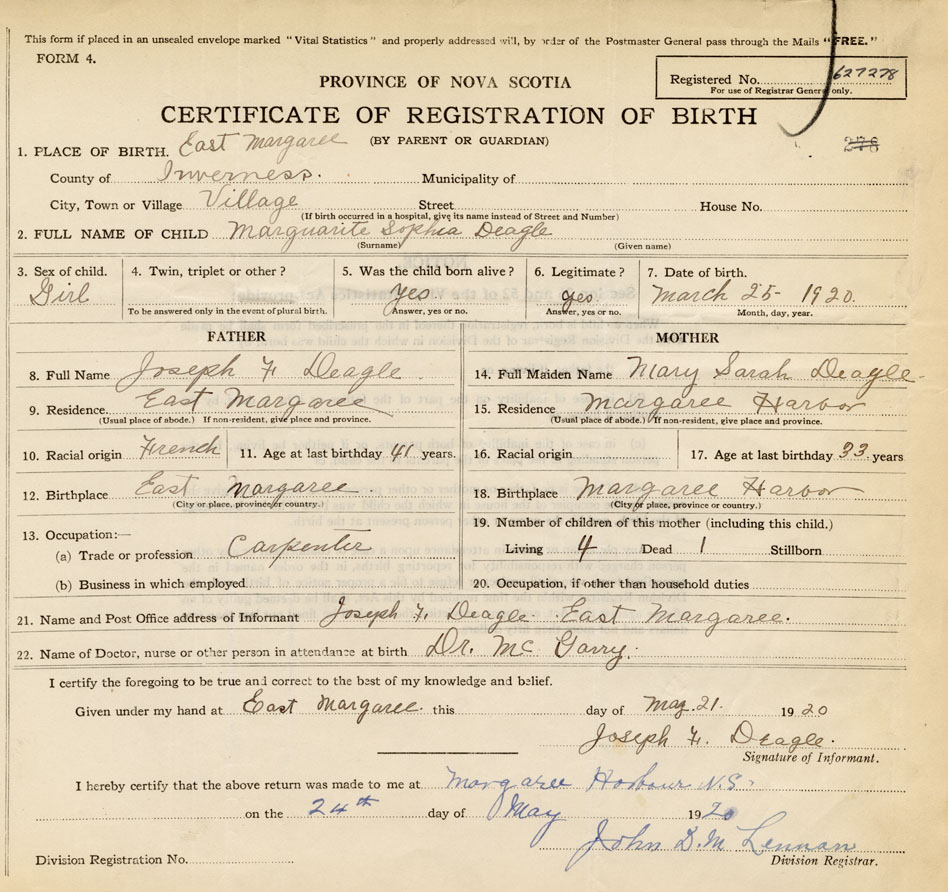 This form if placed in an unsealed envelope marked "Vital Statistics" and properly addressed will, by order of the Postmaster General pass through the Mails "FREE."
FORM 4.
Registered No. 627278
For use of Registrar General only.
PROVINCE OF NOVA SCOTIA
CERTIFICATE OF REGISTRATION OF BIRTH
(BY PARENT OR GUARDIAN)
278
1. PLACE OF BIRTH. East Margaree
County of Inverness. Municipality of
City, Town or Village Village Street House No.
(If birth occurred in a hospital, give its name instead of Street and Number)
2. FULL NAME OF CHILD Marguarite Sophia Deagle
(Surname) (Given name)
3. Sex of child. 4. Twin, triplet or other? 5. Was the child born alive? 6. Legitimate? 7. Date of birth.
Girl Yes. Yes. March 25- 1920.
To be answered only in the event of plural birth. Answer, yes or no. Answer, yes or no. Month, day, year.
FATHER MOTHER
8. Full Name Joseph F. Deagle 14. Full Maiden Name Mary Sarah Deagle.
9. Residence. East Margaree 15. Residence Margaree Harbor
(Usual place of abode.) If non-resident, give place and province. (Usual place of abode.) If non-resident, give place and province.
10. Racial origin French 11. Age at last birthday 41 years. 16. Racial origin 17. Age at last birthday 33 years
12. Birthplace East Margaree. 18. Birthplace Margaree Harbor
(City or place, province or country.) (City or place, province or country.)
13. Occupation:— 19. Number of children of this mother (including this child.)
(a) Trade or profession Carpenter Living 4 Dead 1 Stillborn
(b) Business in which employed 20. Occupation, if other than household duties
21. Name and Post Office address of Informant Joseph F. Deagle East Margaree.
22. Name of Doctor, nurse or other person in attendance at birth Dr. Mc Garry.
I certify the foregoing to be true and correct to the best of my knowledge and belief.
Given under my hand at East Margaree. this day of May. 21. 1920
Joseph F. Deagle.
Signature of Informant.
I hereby certify that the above return was made to me at Margaree Harbour N.S.
on the 24th day of May 1920
John D. McLennan
Division Registration No. Division Registrar.